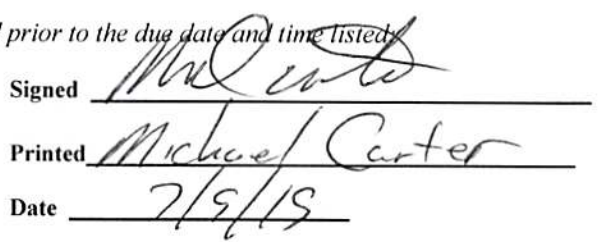 prior to the due date and time listed
Signed
Printed Michael Carter
Date